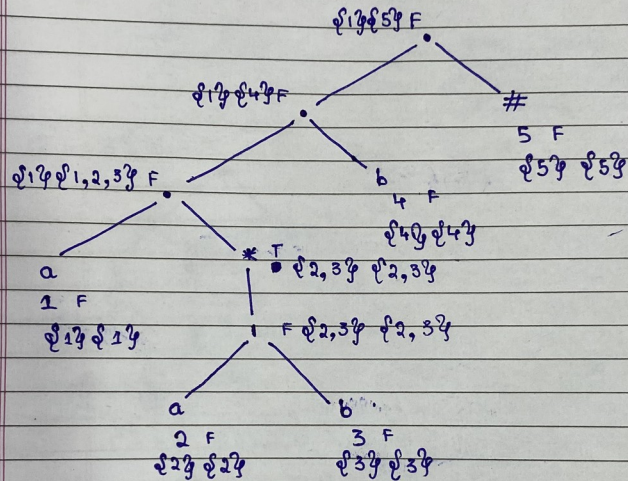 {1}{5} F
{1}{4} F
#
5 F
{5} {5}
{1}{1,2,3} F
b
4 F
{4}{4}
a
1 F
{1}{1}
* T {2,3} {2,3}
| F {2,3} {2,3}
a
2 F
{2}{2}
b
3 F
{3}{3}